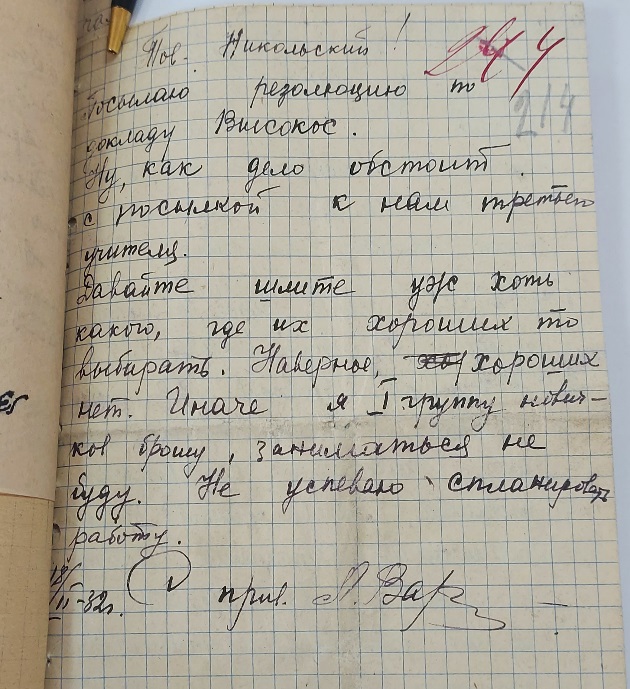 Тов. Никольский!
214
Посылаю резолюцию по
докладу Высокос.
Ну, как дело обстоит
с посылкой к нам третьего
учителя.
Давайте шлите уж хоть
какого, где их хороших то
выбирать. Наверное, хороших
нет. Иначе я I группу нович-
ков брошу, заниматься не
буду. Не успеваю спланировать
работу.
18/II-32г. прив.